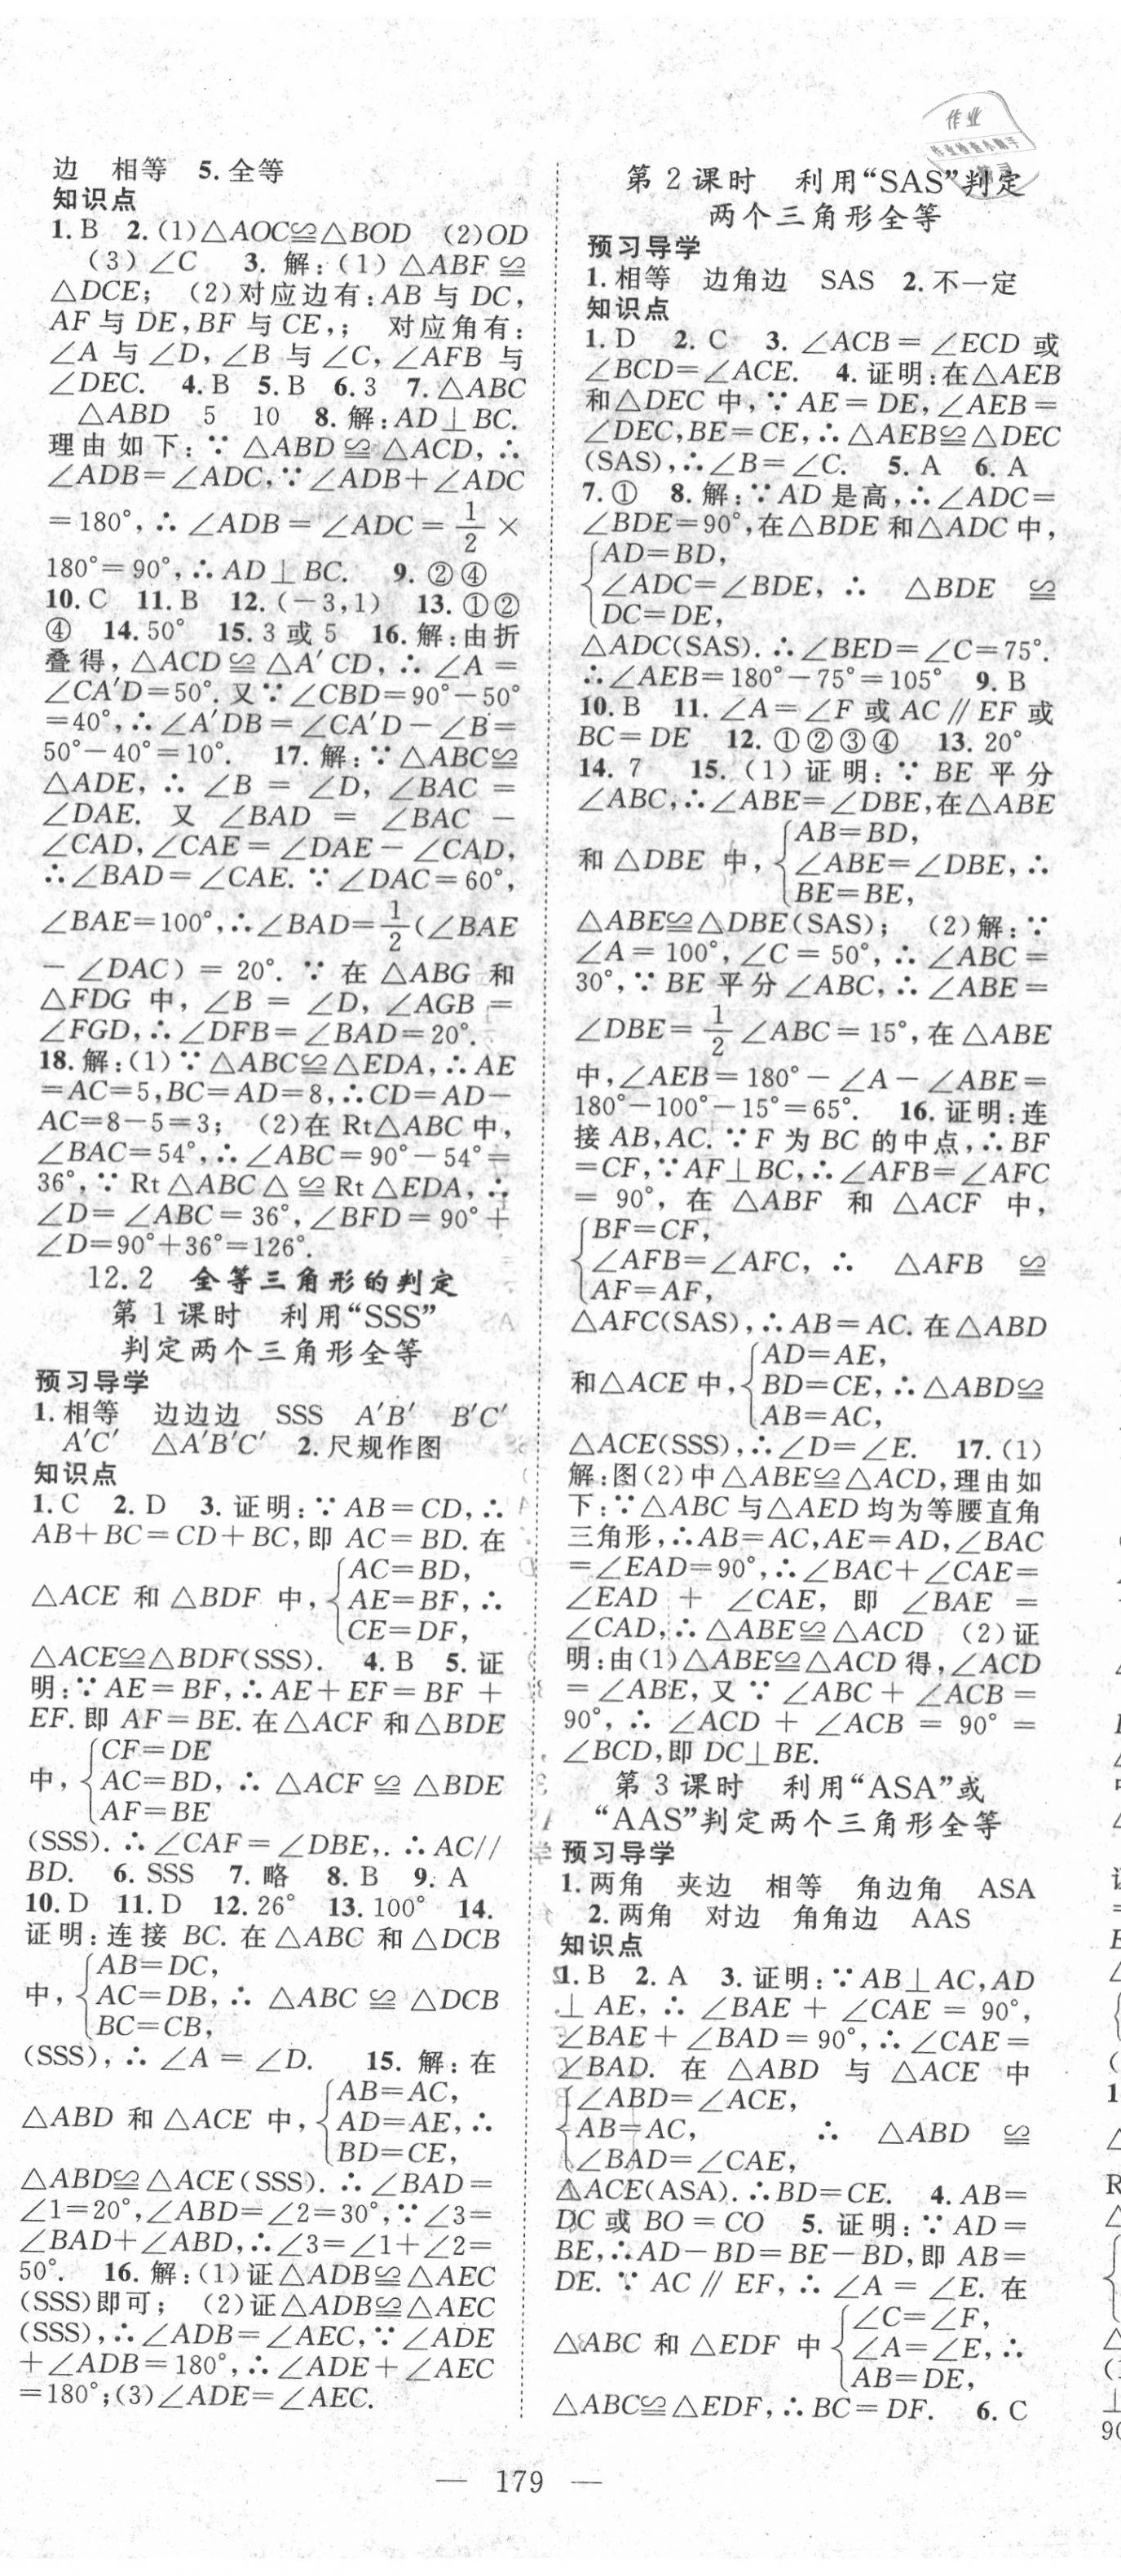 边 相等 5.全等
知识点
1.B 2.(1)△AOC≌△BOD (2)OD
(3)∠C 3.解:(1)△ABF≌
△DCE; (2)对应边有:AB与DC,
AF与DE,BF与CE,; 对应角有:
∠A与∠D,∠B与∠C,∠AFB与
∠DEC. 4.B 5.B 6.3 7.△ABC
△ABD 5 10 8.解:AD⊥BC.
理由如下:∵△ABD≌△ACD,∴
∠ADB=∠ADC,∵∠ADB+∠ADC
=180°,∴∠ADB=∠ADC=1/2×
180°=90°,∴AD⊥BC. 9.②④
10.C 11.B 12.(-3,1) 13.①②
④ 14.50° 15.3或5 16.解:由折
叠得,△ACD≌△A′CD,∴∠A=
∠CA′D=50°.又∵∠CBD=90°-50°
=40°,∴∠A′DB=∠CA′D-∠B=
50°-40°=10°. 17.解:∵△ABC≌
△ADE,∴∠B=∠D,∠BAC=
∠DAE. 又∠BAD=∠BAC-
∠CAD,∠CAE=∠DAE-∠CAD,
∴∠BAD=∠CAE.∵∠DAC=60°,
∠BAE=100°,∴∠BAD=1/2(∠BAE
-∠DAC)=20°.∵在△ABG和
△FDG中,∠B=∠D,∠AGB=
∠FGD,∴∠DFB=∠BAD=20°.
18.解:(1)∵△ABC≌△EDA,∴AE
=AC=5,BC=AD=8,∴CD=AD-
AC=8-5=3; (2)在Rt△ABC中,
∠BAC=54°,∴∠ABC=90°-54°=
36°,∵Rt△ABC△≌Rt△EDA,∴
∠D=∠ABC=36°,∠BFD=90°+
∠D=90°+36°=126°.
12.2 全等三角形的判定
第1课时 利用“SSS”
判定两个三角形全等
预习导学
1.相等 边边边 SSS A′B′ B′C′
A′C′ △A′B′C′ 2.尺规作图
知识点
1.C 2.D 3.证明:∵AB=CD,∴
AB+BC=CD+BC,即AC=BD.在
AC=BD,
△ACE和△BDF中,{AE=BF,∴
CE=DF,
△ACE≌△BDF(SSS). 4.B 5.证
明:∵AE=BF,∴AE+EF=BF+
EF.即AF=BE.在△ACF和△BDE
CF=DE
中,{AC=BD,∴△ACF≌△BDE
AF=BE
(SSS).∴∠CAF=∠DBE,.∴AC//
BD. 6.SSS 7.略 8.B 9.A
10.D 11.D 12.26° 13.100° 14.
证明:连接BC.在△ABC和△DCB
AB=DC,
中,{AC=DB,∴△ABC≌△DCB
BC=CB,
(SSS),∴∠A=∠D. 15.解:在
AB=AC,
△ABD和△ACE中,{AD=AE,∴
BD=CE,
△ABD≌△ACE(SSS).∴∠BAD=
∠1=20°,∠ABD=∠2=30°,∵∠3=
∠BAD+∠ABD,∴∠3=∠1+∠2=
50°. 16.解:(1)证△ADB≌△AEC
(SSS)即可; (2)证△ADB≌△AEC
(SSS),∴∠ADB=∠AEC,∵∠ADE
+∠ADB=180°,∴∠ADE+∠AEC
=180°;(3)∠ADE=∠AEC.
作业
作业检查小助手
第2课时 利用“SAS”判定
两个三角形全等
预习导学
1.相等 边角边 SAS 2.不一定
知识点
1.D 2.C 3.∠ACB=∠ECD或
∠BCD=∠ACE. 4.证明:在△AEB
和△DEC中,∵AE=DE,∠AEB=
∠DEC,BE=CE,∴△AEB≌△DEC
(SAS),∴∠B=∠C. 5.A 6.A
7.① 8.解:∵AD是高,∴∠ADC=
∠BDE=90°,在△BDE和△ADC中,
AD=BD,
{∠ADC=∠BDE,∴△BDE≌
DC=DE,
△ADC(SAS).∴∠BED=∠C=75°.
∴∠AEB=180°-75°=105° 9.B
10.B 11.∠A=∠F或AC∥EF或
BC=DE 12.①②③④ 13.20°
14.7 15.(1)证明:∵BE平分
∠ABC,∴∠ABE=∠DBE,在△ABE
AB=BD,
和△DBE中,{∠ABE=∠DBE,∴
BE=BE,
△ABE≌△DBE(SAS); (2)解:∵
∠A=100°,∠C=50°,∴∠ABC=
30°,∵BE平分∠ABC,∴∠ABE=
∠DBE=1/2∠ABC=15°,在△ABE
中,∠AEB=180°-∠A-∠ABE=
180°-100°-15°=65°. 16.证明:连
接AB,AC.∵F为BC的中点,∴BF
=CF,∵AF⊥BC,∴∠AFB=∠AFC
=90°,在△ABF和△ACF中,
BF=CF,
{∠AFB=∠AFC,∴△AFB≌
AF=AF,
△AFC(SAS),∴AB=AC.在△ABD
AD=AE,
和△ACE中,{BD=CE,∴△ABD≌
AB=AC,
△ACE(SSS),∴∠D=∠E. 17.(1)
解:图(2)中△ABE≌△ACD,理由如
下:∵△ABC与△AED均为等腰直角
三角形,∴AB=AC,AE=AD,∠BAC
=∠EAD=90°,∴∠BAC+∠CAE=
∠EAD+∠CAE,即∠BAE=
∠CAD,∴△ABE≌△ACD (2)证
明:由(1)△ABE≌△ACD得,∠ACD
=∠ABE,又∵∠ABC+∠ACB=
90°,∴∠ACD+∠ACB=90°=
∠BCD,即DC⊥BE.
第3课时 利用“ASA”或
“AAS”判定两个三角形全等
预习导学
1.两角 夹边 相等 角边角 ASA
2.两角 对边 角角边 AAS
知识点
1.B 2.A 3.证明:∵AB⊥AC,AD
⊥AE,∴∠BAE+∠CAE=90°,
∠BAE+∠BAD=90°,∴∠CAE=
∠BAD. 在△ABD与△ACE中
∠ABD=∠ACE,
{AB=AC, ∴△ABD≌
∠BAD=∠CAE,
△ACE(ASA).∴BD=CE. 4.AB=
DC或BO=CO 5.证明:∵AD=
BE,∴AD-BD=BE-BD,即AB=
DE.∵AC∥EF,∴∠A=∠E.在
∠C=∠F,
△ABC和△EDF中{∠A=∠E,∴
AB=DE,
△ABC≌△EDF,∴BC=DF. 6.C
— 179 —